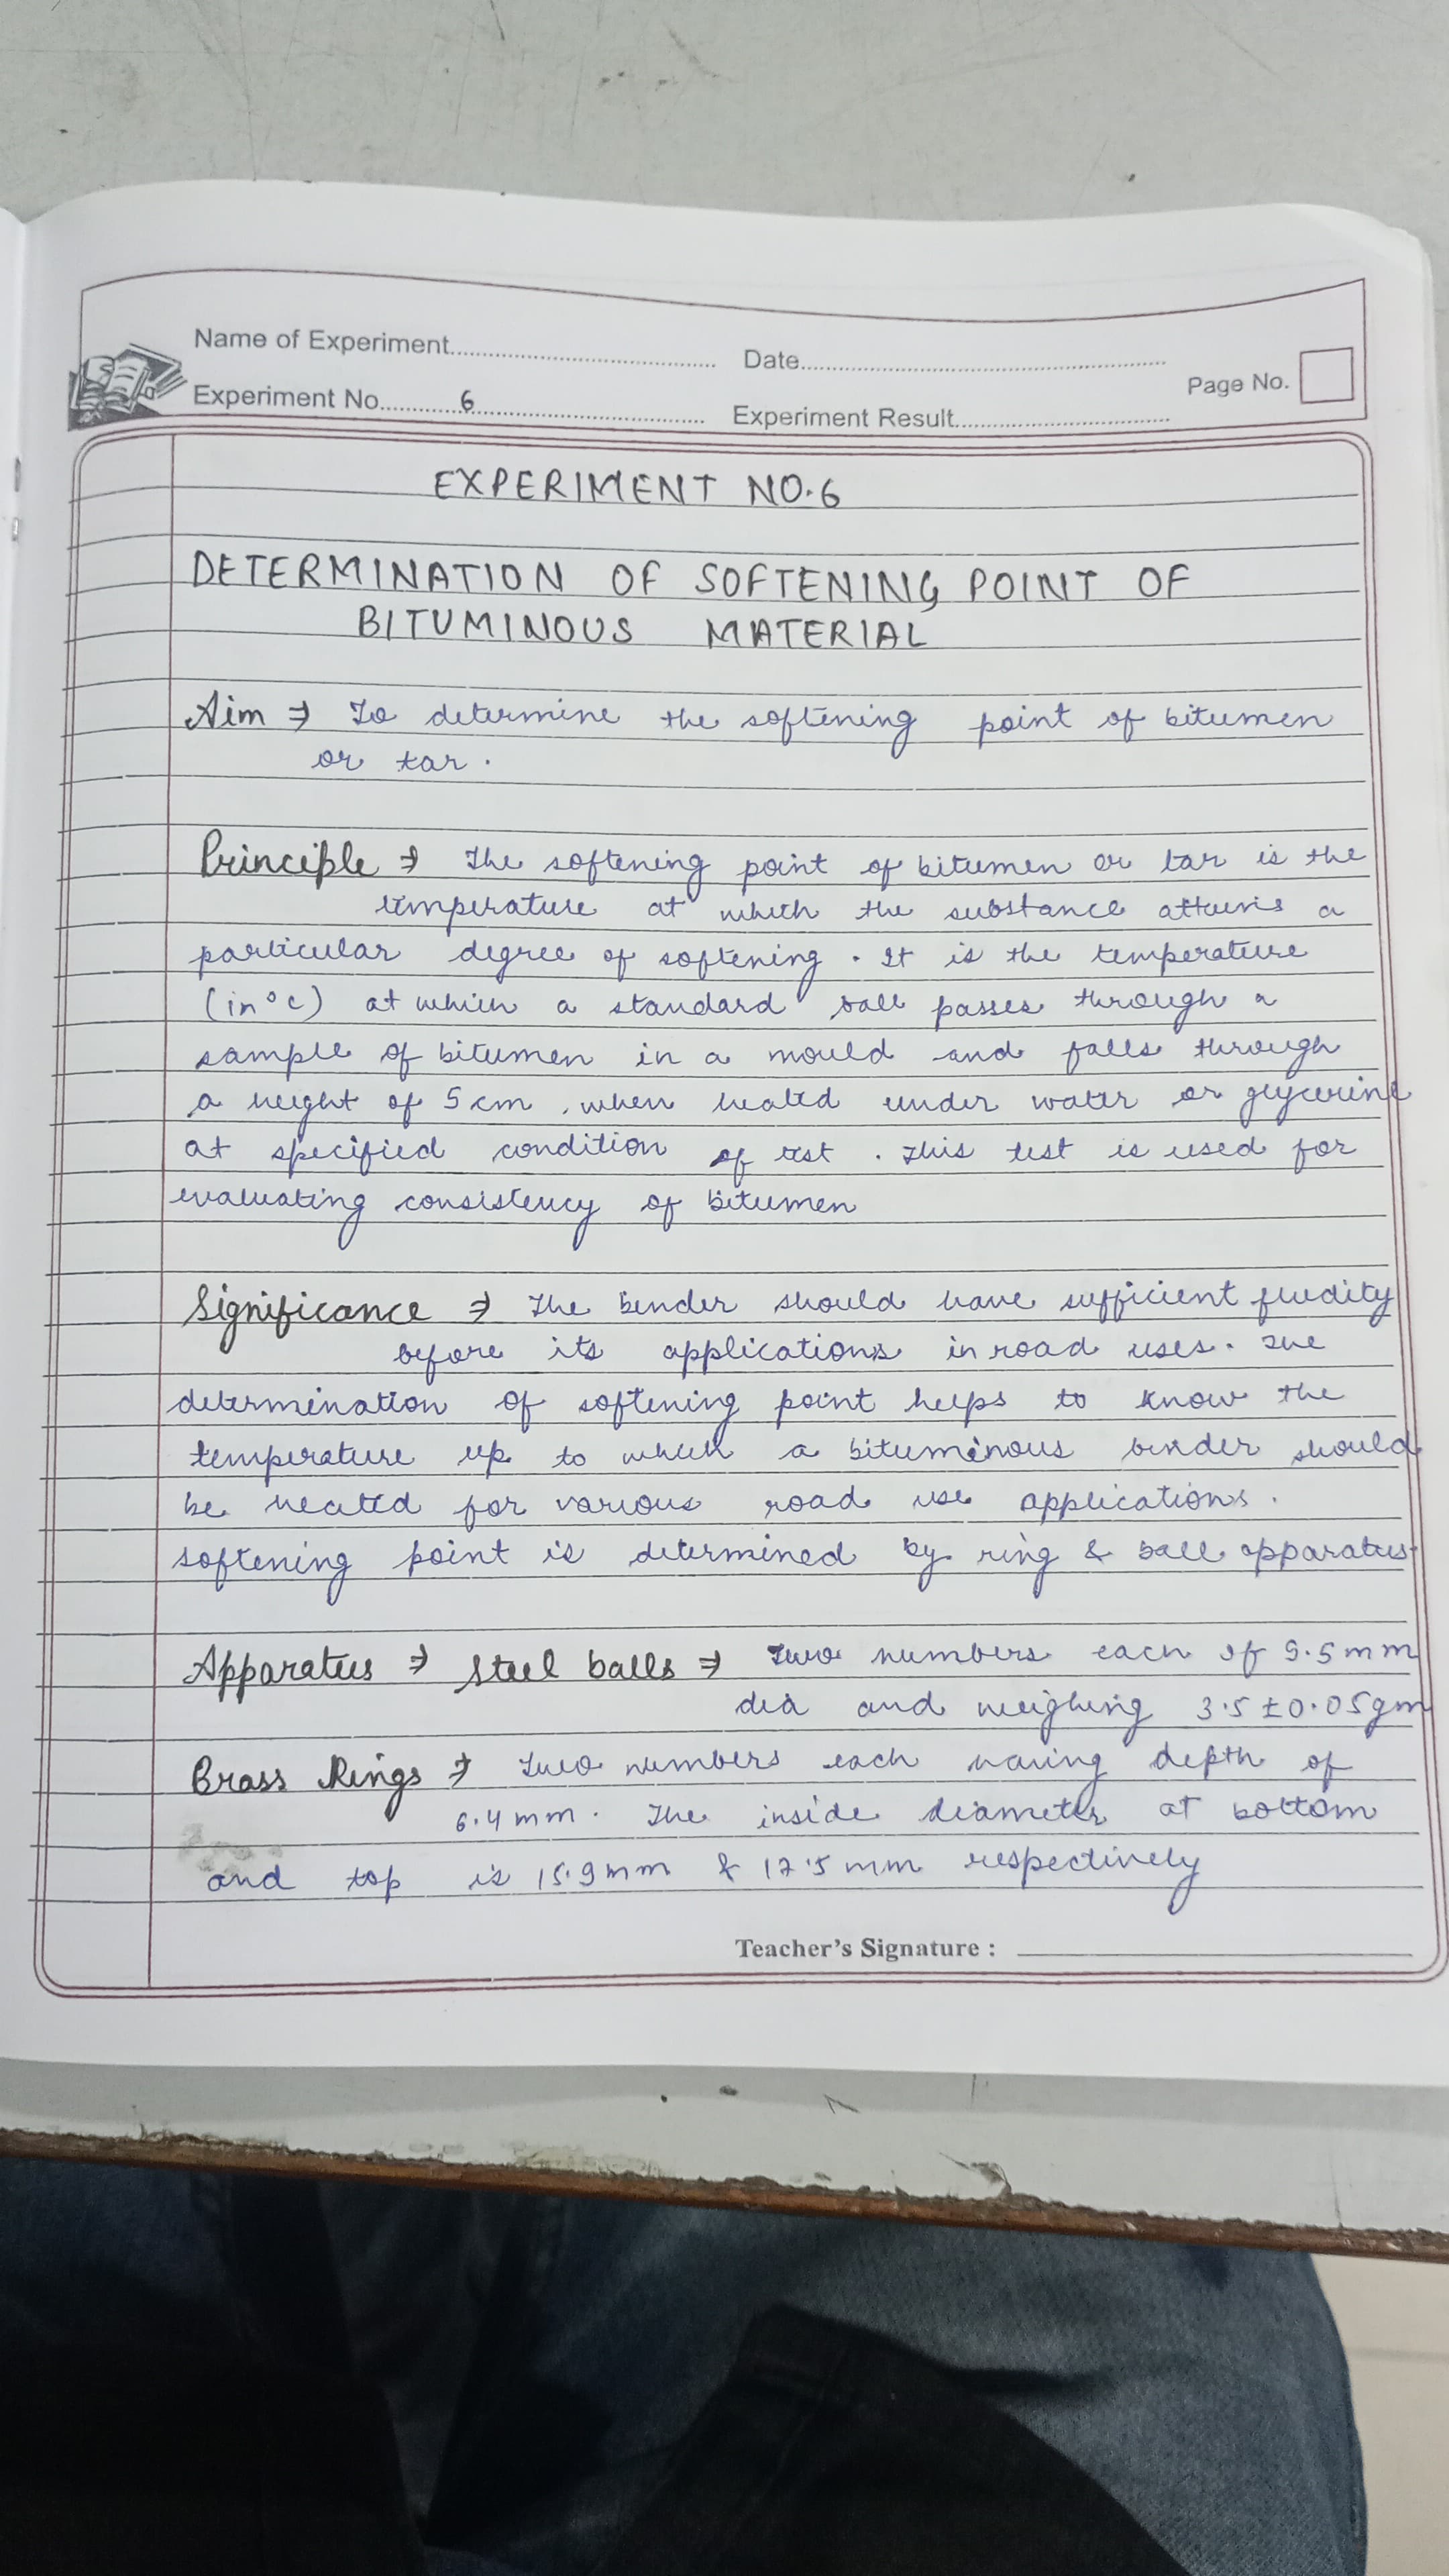 Name of Experiment
Date
Page No.
Experiment No. 6
Experiment Result
EXPERIMENT NO.6
DETERMINATION OF SOFTENING POINT OF
BITUMINOUS MATERIAL
Aim ⇒ To determine the softening point of bitumen
or tar.
Principle ⇒ The softening point of bitumen or tar is the
temperature at which the substance attains a
particular degree of softening. It is the temperature
(in °C) at which a standard ball passes through a
sample of bitumen in a mould and falls through
a height of 5 cm, when heated under water or glycerine
at specified condition of test. This test is used for
evaluating consistency of bitumen
Significance ⇒ The binder should have sufficient fluidity
before its applications in road uses. The
determination of softening point helps to know the
temperature up to which a bituminous binder should
be heated for various road use applications.
softening point is determined by ring & ball apparatus.
Apparatus ⇒ Steel balls ⇒ Two numbers each of 9.5 mm
dia and weighing 3.5 ± 0.05 gm
Brass Rings ⇒ Two numbers each having depth of
6.4 mm. The inside diameter at bottom
and top is 15.9 mm & 17.5 mm respectively
Teacher's Signature :